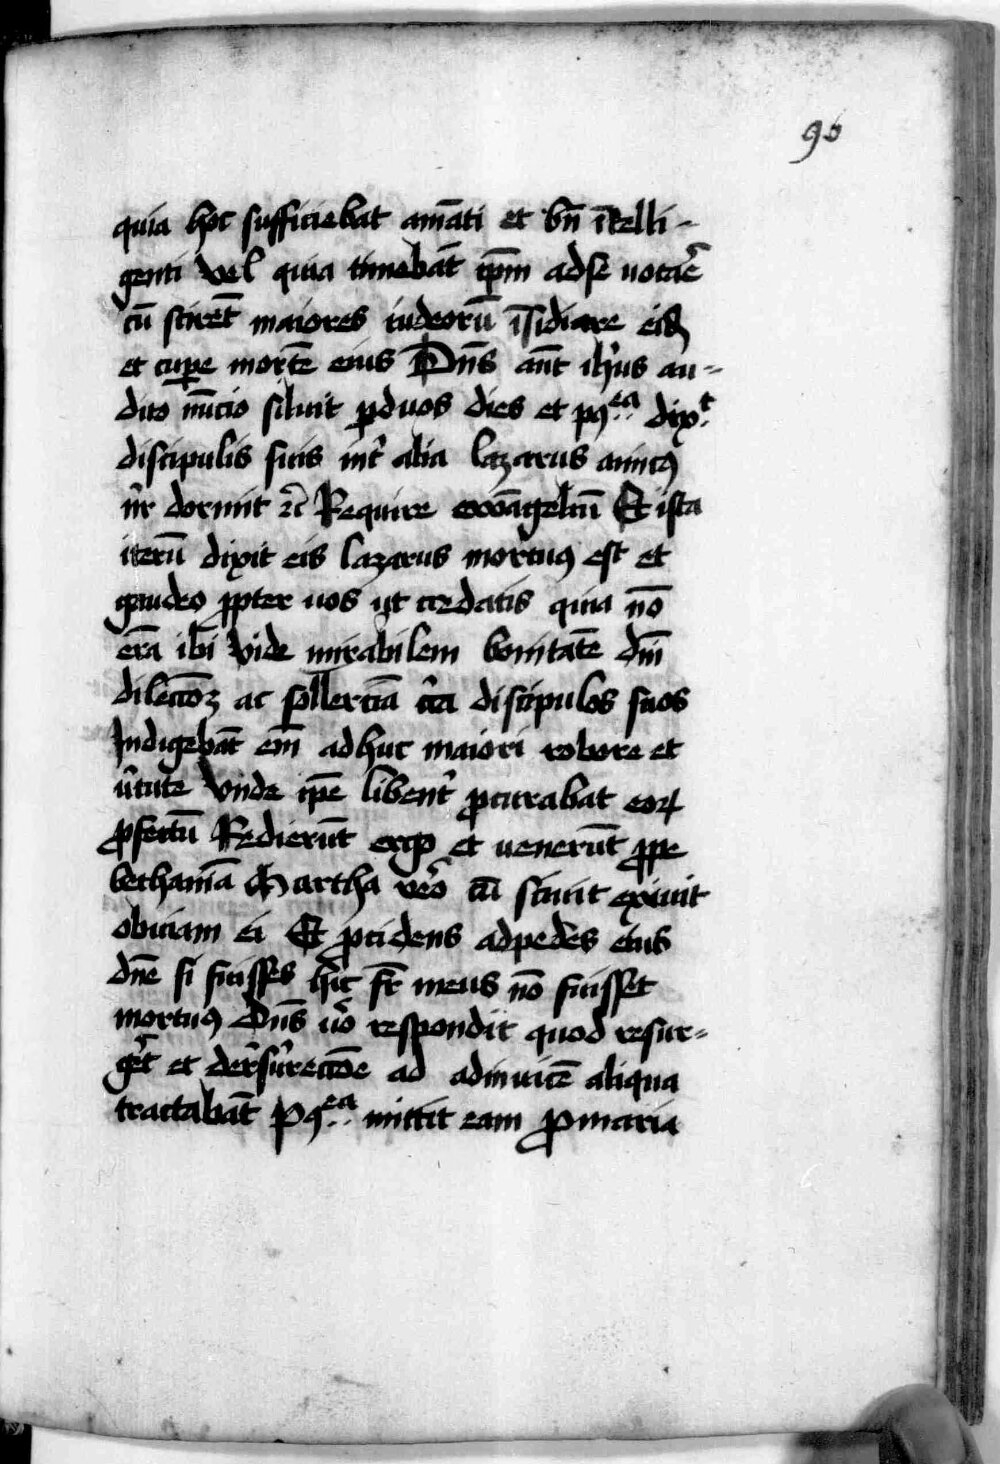 96
quia hoc sufficiebat amāti et bn̄ ītelli-
genti vel quia timebāt ip̄m ad se uocaͬe
cū scirēt maiores iudeorū īsidiare eis
et cuꝑe mortē eius Dn̄s aūt ih̄us au-
dito nūcio siluit ꝑ duos dies et pꝰᵉᵃ dixᵗ
discipulis suis int̄ alia lazarus amicꝰ
nr̄ dormit ⁊c̄ Require ewāgeliū Et ista
iterū dixit eis lazarus mortuꝰ est et
gaudeo ꝓpter uos ut credatis quia nō
erā ibi Vide mirabilem bonitatē dn̄i
dilecc̄oꝫ ac sollerciā c̄ca discipulos suos
Indigebāt em̄ adhuc maiori robore et
v̄tute Vnde ip̄e libent̄ ꝓcurabat eoꝝ
ꝓfectū Redierūt ergo et uenerūt ꝓpe
bethaniā Martha ve͛o cū sciuit exiuit
obuiam ei Et ꝓcidens ad pedes eius
dn̄e si fuisses hic fr̄ meus nō fuisset
mortuꝰ Dn̄s v̄o respondit quod resur-
ge͛t et de r̄surrecc̄oe ad adinuicē aliqua
tractabāt Pꝰᵉᵃ mittit eam ꝓ maria